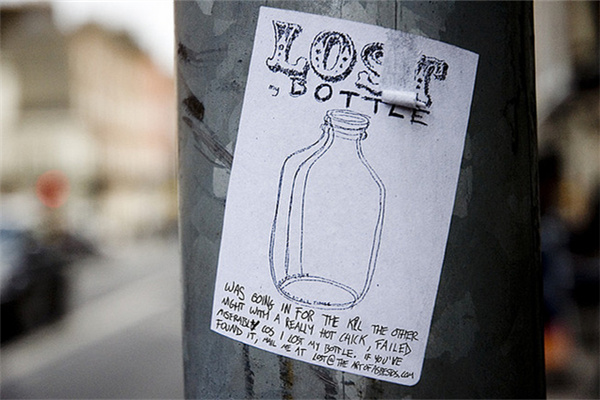 LOST
My BOTTLE
WAS GOING IN FOR THE KILL THE OTHER
NIGHT WITH A REALLY HOT CHICK, FAILED
MISERABLY COS I LOST MY BOTTLE. IF YOU'VE
FOUND IT, MAIL ME AT LOST@THE